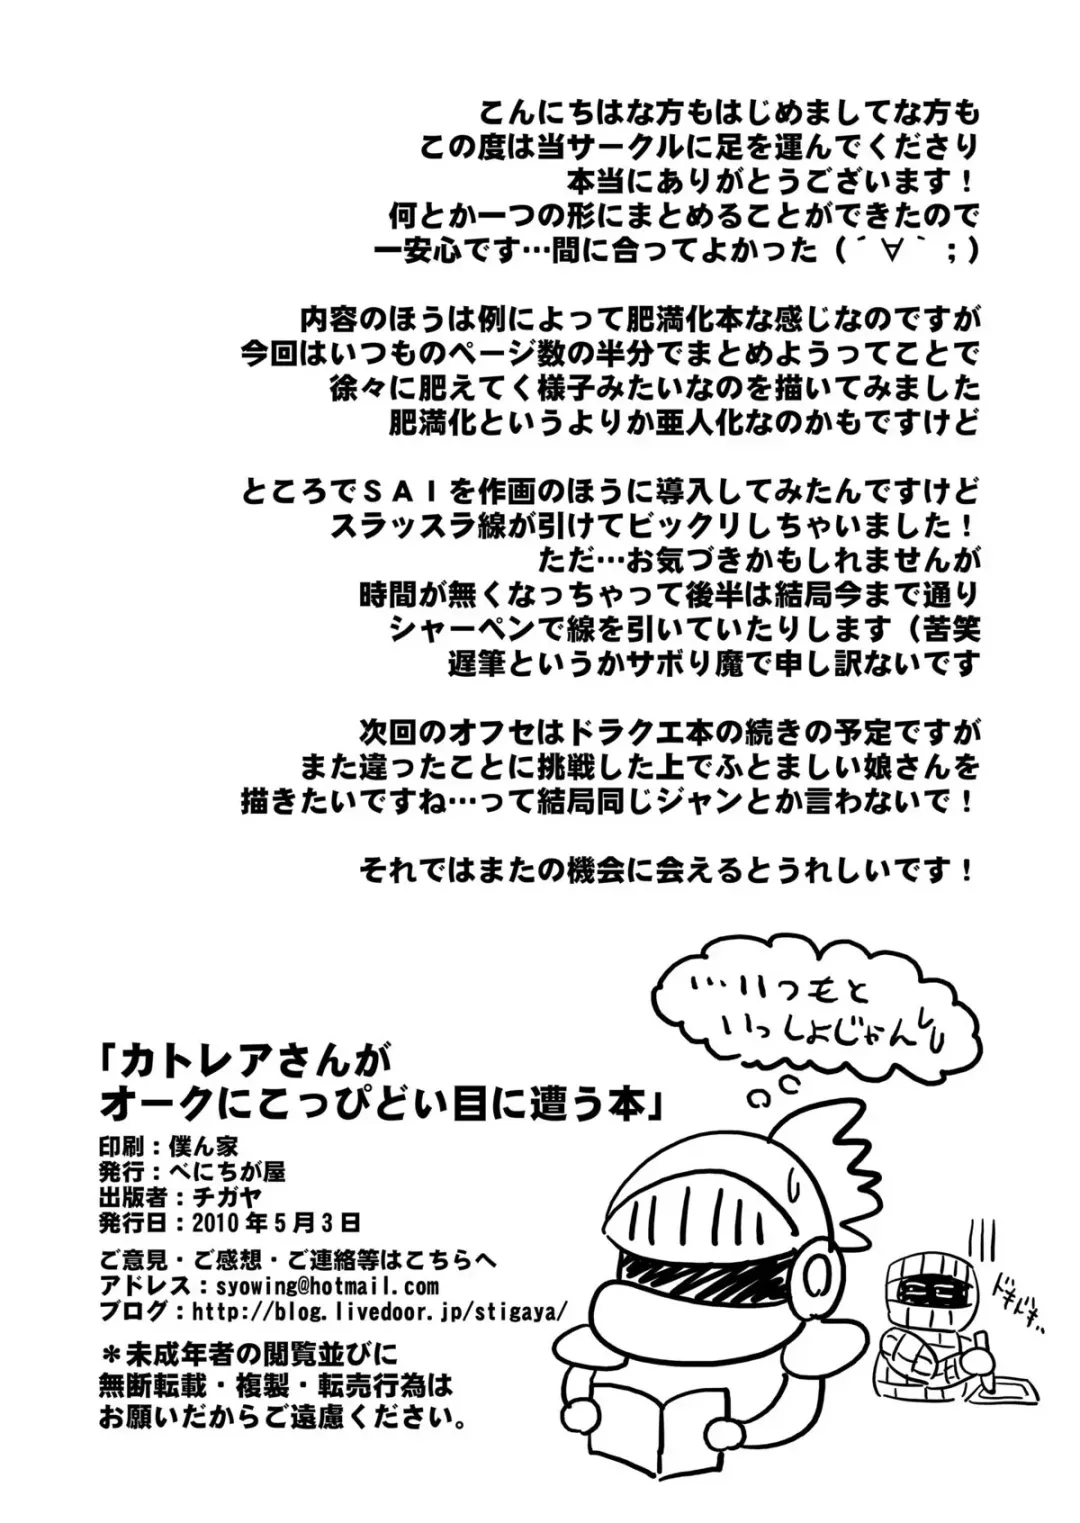 こんにちはな方もはじめましてな方も
この度は当サークルに足を運んでくださり
本当にありがとうございます！
何とか一つの形にまとめることができたので
一安心です…間に合ってよかった（´∀｀；）
内容のほうは例によって肥満化本な感じなのですが
今回はいつものページ数の半分でまとめようってことで
徐々に肥えてく様子みたいなのを描いてみました
肥満化というよりか亜人化なのかもですけど
ところでＳＡＩを作画のほうに導入してみたんですけど
スラッスラ線が引けてビックリしちゃいました！
ただ…お気づきかもしれませんが
時間が無くなっちゃって後半は結局今まで通り
シャーペンで線を引いていたりします（苦笑
遅筆というかサボり魔で申し訳ないです
次回のオフセはドラクエ本の続きの予定ですが
また違ったことに挑戦した上でふとましい娘さんを
描きたいですね…って結局同じジャンとか言わないで！
それではまたの機会に会えるとうれしいです！
…いつもと
いっしょじゃんしし
「カトレアさんが
オークにこっぴどい目に遭う本」
印刷：僕ん家
発行：べにちが屋
出版者：チガヤ
発行日：2010年5月3日
ご意見・ご感想・ご連絡等はこちらへ
アドレス：syowing@hotmail.com
ブログ：http://blog.livedoor.jp/stigaya/
＊未成年者の閲覧並びに
無断転載・複製・転売行為は
お願いだからご遠慮ください。
ドキドキ‥